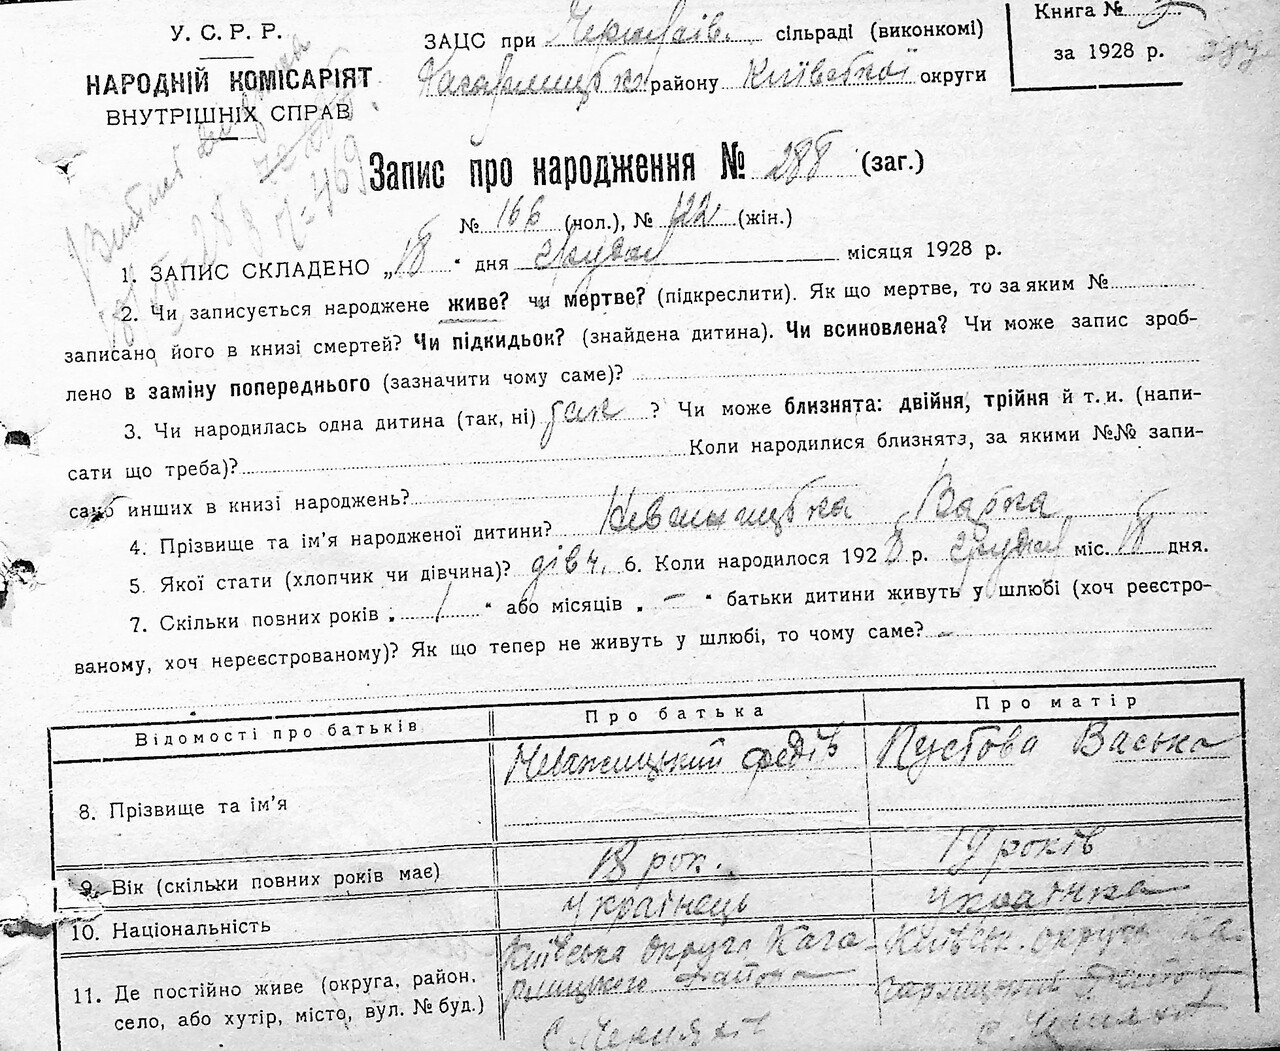 У. С. Р. Р.
НАРОДНІЙ КОМІСАРІЯТ
ВНУТРІШНІХ СПРАВ
ЗАЦС при Черняхів. сільраді (виконкомі)
Кагарлицьк району Київської округи
Книга №
за 1928 р.
287
Запис про народження № 288 (заг.)
№ 166 (чол.), № 122 (жін.)
1. ЗАПИС СКЛАДЕНО „18 “ дня Грудня місяця 1928 р.
2. Чи записується народжене живе? чи мертве? (підкреслити). Як що мертве, то за яким №
записано його в книзі смертей? Чи підкидьок? (знайдена дитина). Чи всиновлена? Чи може запис зроб-
лено в заміну попереднього (зазначити чому саме)?
3. Чи народилась одна дитина (так, ні) так ? Чи може близнята: двійня, трійня й т. и. (напи-
сати що треба)? Коли народилися близнята, за якими №№ запи-
сано инших в книзі народжень?
4. Прізвище та ім'я народженої дитини?
5. Якої стати (хлопчик чи дівчина)? дівч. 6. Коли народилося 1928 р. Грудня міс. 18 дня.
7. Скільки повних років „ 1 “ або місяців „ — “ батьки дитини живуть у шлюбі (хоч реєстро-
ваному, хоч нереєстрованому)? Як що тепер не живуть у шлюбі, то чому саме? —
Відомості про батьків Про батька Про матір
8. Прізвище та ім'я Федір Пустова Васька
9. Вік (скільки повних років має) 18 рок. 19 років
10. Національність Українець Українка
11. Де постійно живе (округа, район, село, або хутір, місто, вул. № буд.)
Київська округа Кага-
рлицького района
с. Черняхів
Київськ. округа Ка-
гарлицький район
с. Черняхів